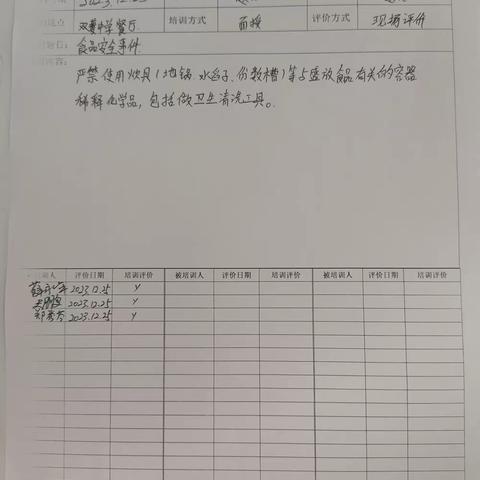 2023.12.25
地点 双菱中学餐厅 培训方式 面授 评价方式 现场评价
食品安全事件
内容:
严禁使用炊具(地锅、水舀子、份数槽)等与盛放食品有关的容器
稀释化学品,包括做卫生清洗工具。
训人 评价日期 培训评价 被培训人 评价日期 培训评价 被培训人 评价日期 培训评价
2023.12.25 Y
2023.12.25 Y
2023.12.25 Y